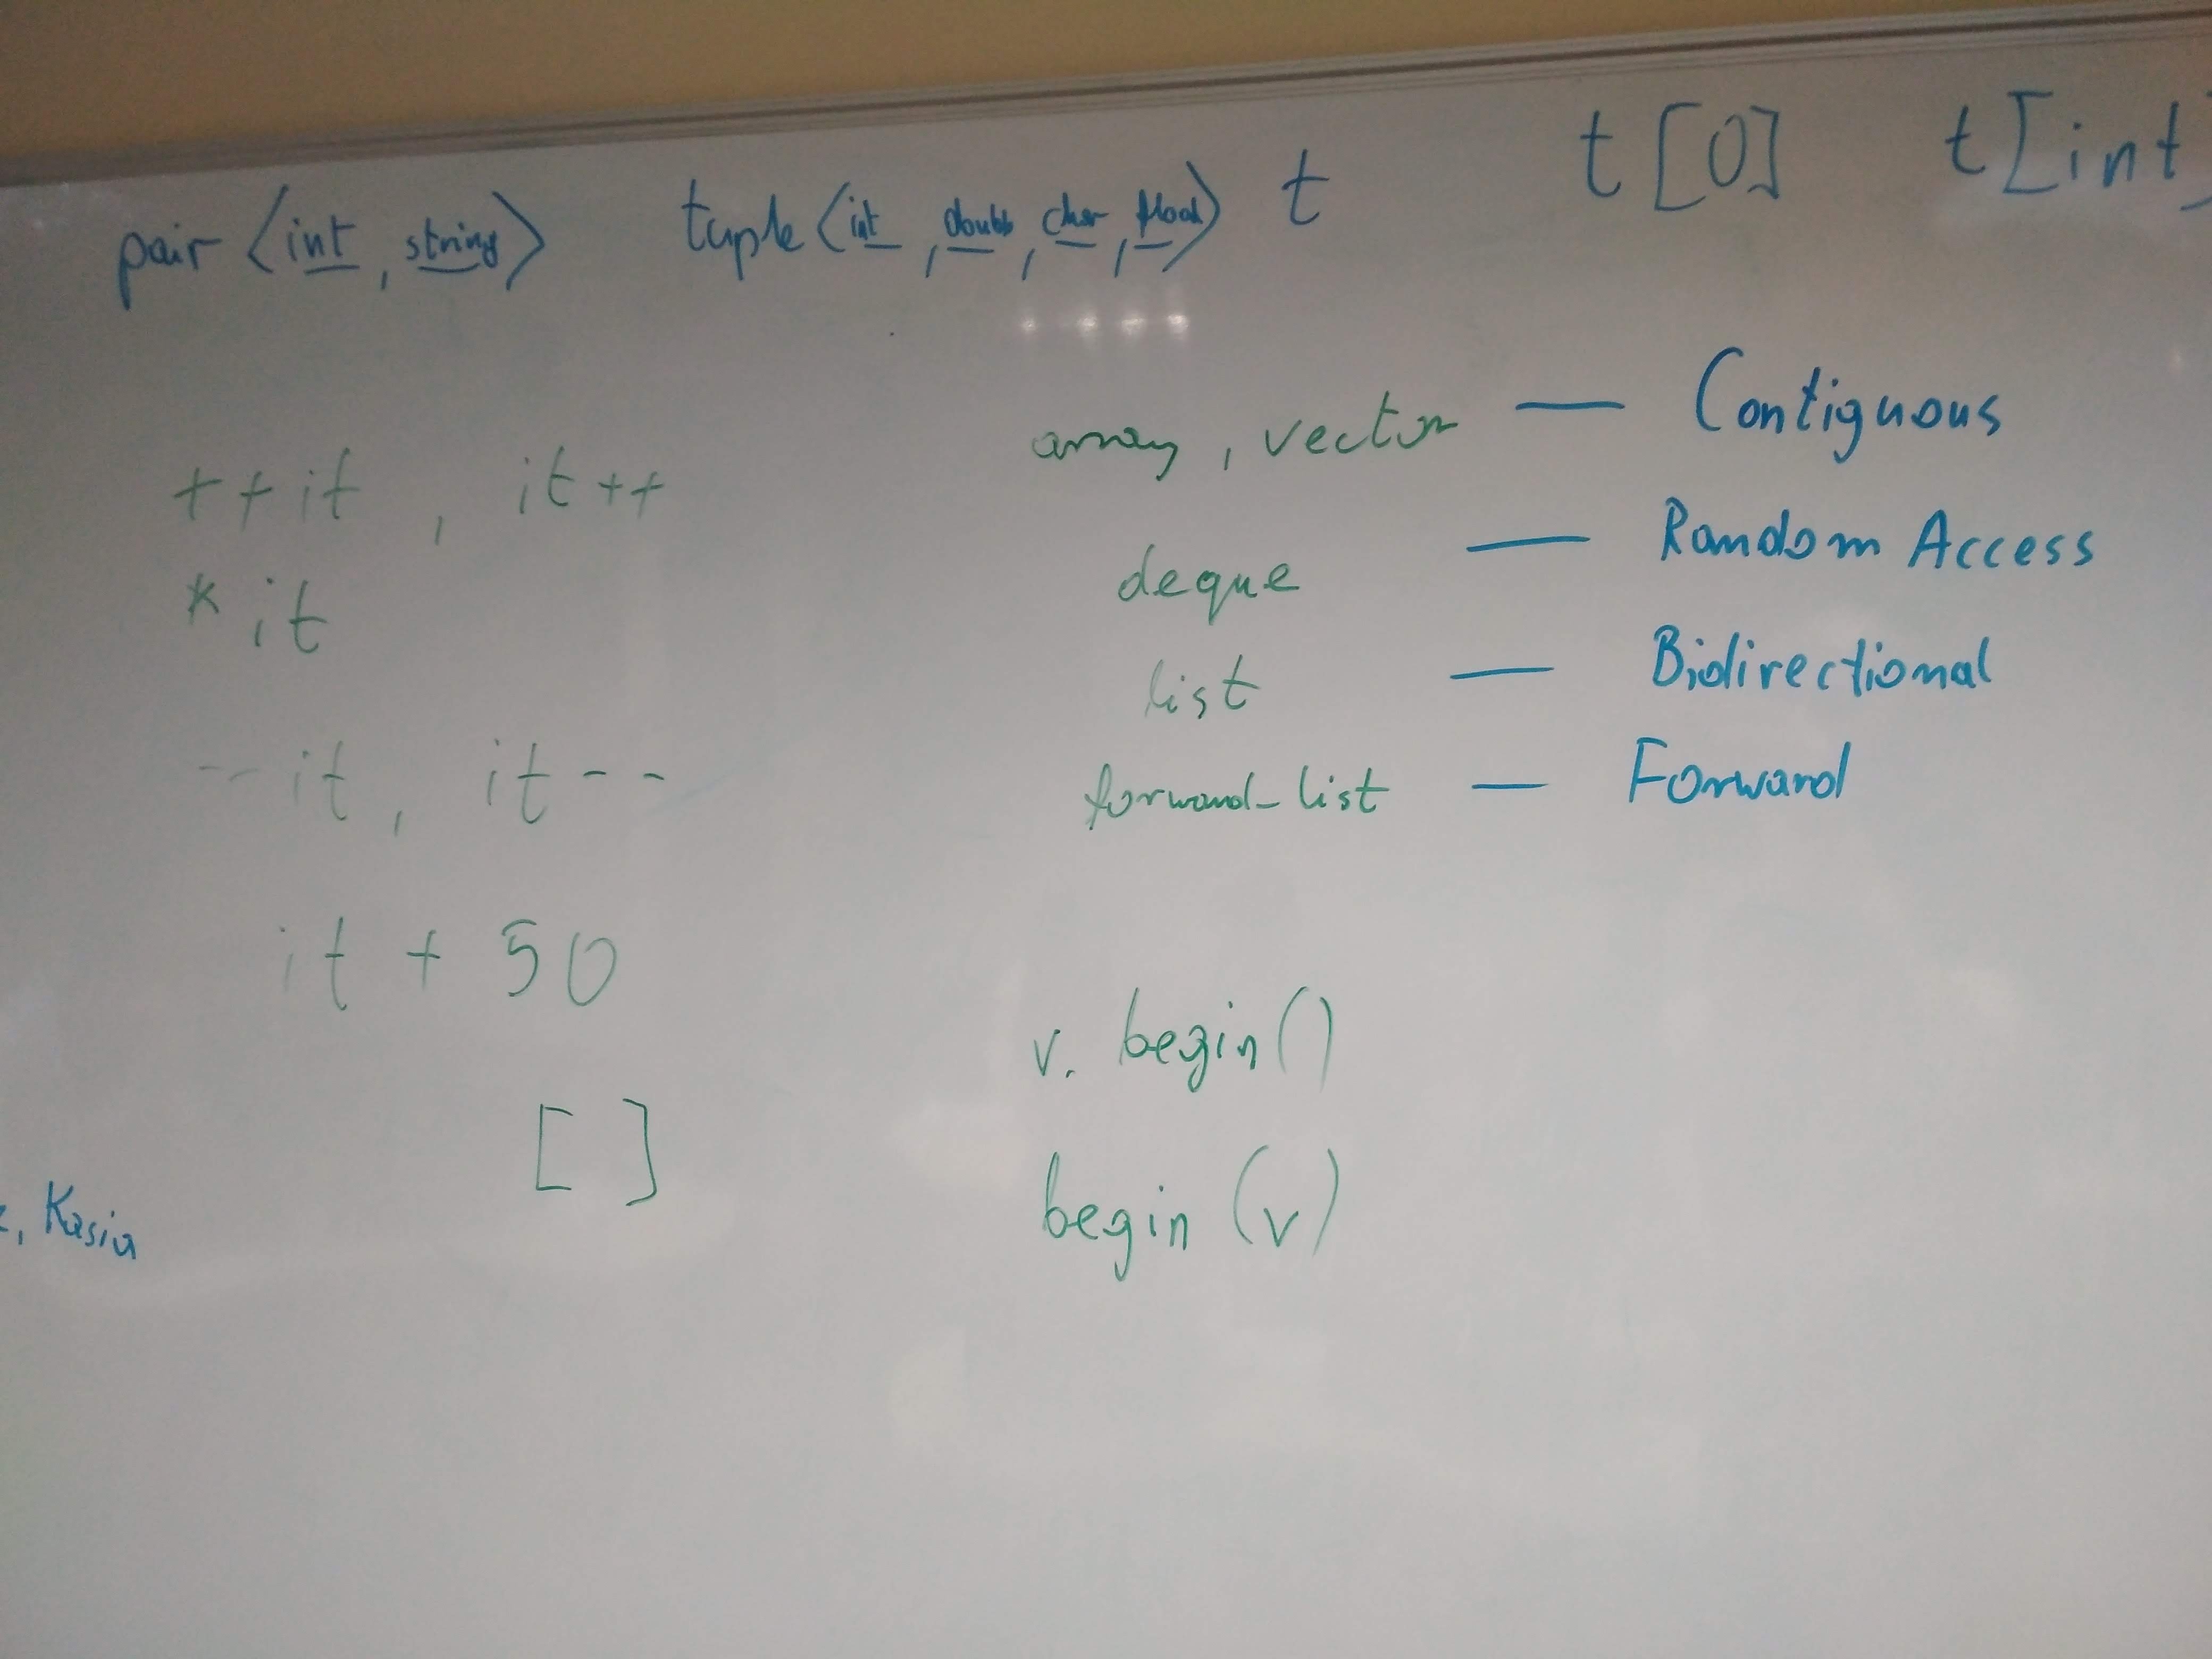 pair <int, string> tuple <int, double, char, float> t t[0] t[int]
++it , it++
*it
--it , it--
it + 50
[ ]
, Kasia
array , vector — Contiguous
deque — Random Access
list — Bidirectional
forward_list — Forward
v. begin()
begin (v)